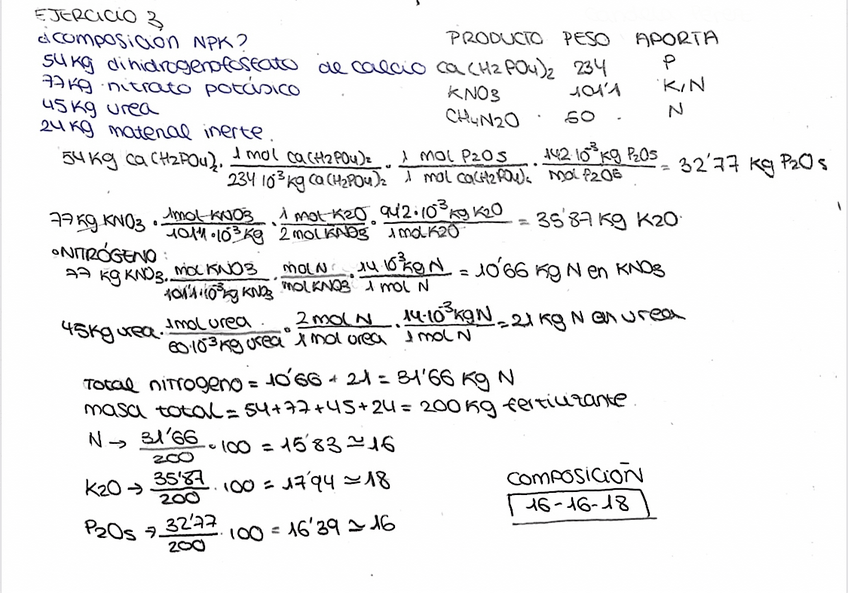 EJERCICIO 3
¿composición NPK?
PRODUCTO PESO APORTA
54 Kg dihidrogenofosfato de calcio Ca(H2PO4)2 234 P
77 Kg nitrato potásico KNO3 101'1 K,N
45 Kg urea CH4N2O 60 N
24 Kg material inerte.
54 Kg Ca(H2PO4)2 · 1 mol Ca(H2PO4)2 / 234 10^-3 kg Ca(H2PO4)2 · 1 mol P2O5 / 1 mol Ca(H2PO4)2 · 142 10^-3 kg P2O5 / mol P2O5 = 32'77 kg P2O5
77 kg KNO3 · 1 mol KNO3 / 101'1·10^-3 kg · 1 mol K2O / 2 mol KNO3 · 94'2·10^-3 kg K2O / 1 mol K2O = 35'87 kg K2O
·NITRÓGENO:
77 kg KNO3 · mol KNO3 / 101'1·10^-3 kg KNO3 · mol N / mol KNO3 · 14·10^-3 kg N / 1 mol N = 10'66 kg N en KNO3
45 kg urea · 1 mol urea / 60·10^-3 kg urea · 2 mol N / 1 mol urea · 14·10^-3 kg N / 1 mol N = 21 kg N en urea
Total nitrogeno = 10'66 + 21 = 31'66 kg N
masa total = 54+77+45+24 = 200 Kg fertilizante
N → 31'66 / 200 · 100 = 15'83 ≃ 16
K2O → 35'87 / 200 · 100 = 17'94 ≃ 18
P2O5 → 32'77 / 200 · 100 = 16'39 ≃ 16
COMPOSICIÓN
16-16-18